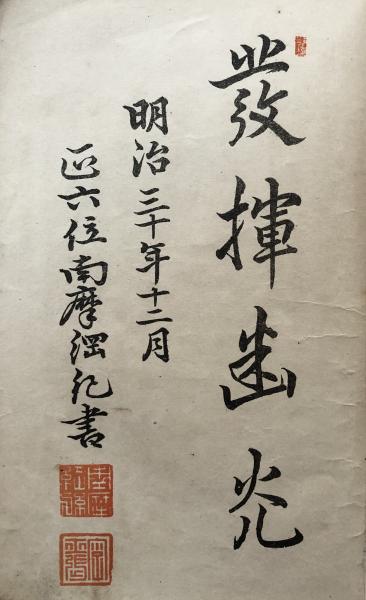 發揮幽光
明治三十年十二月
正六位南摩綱紀書